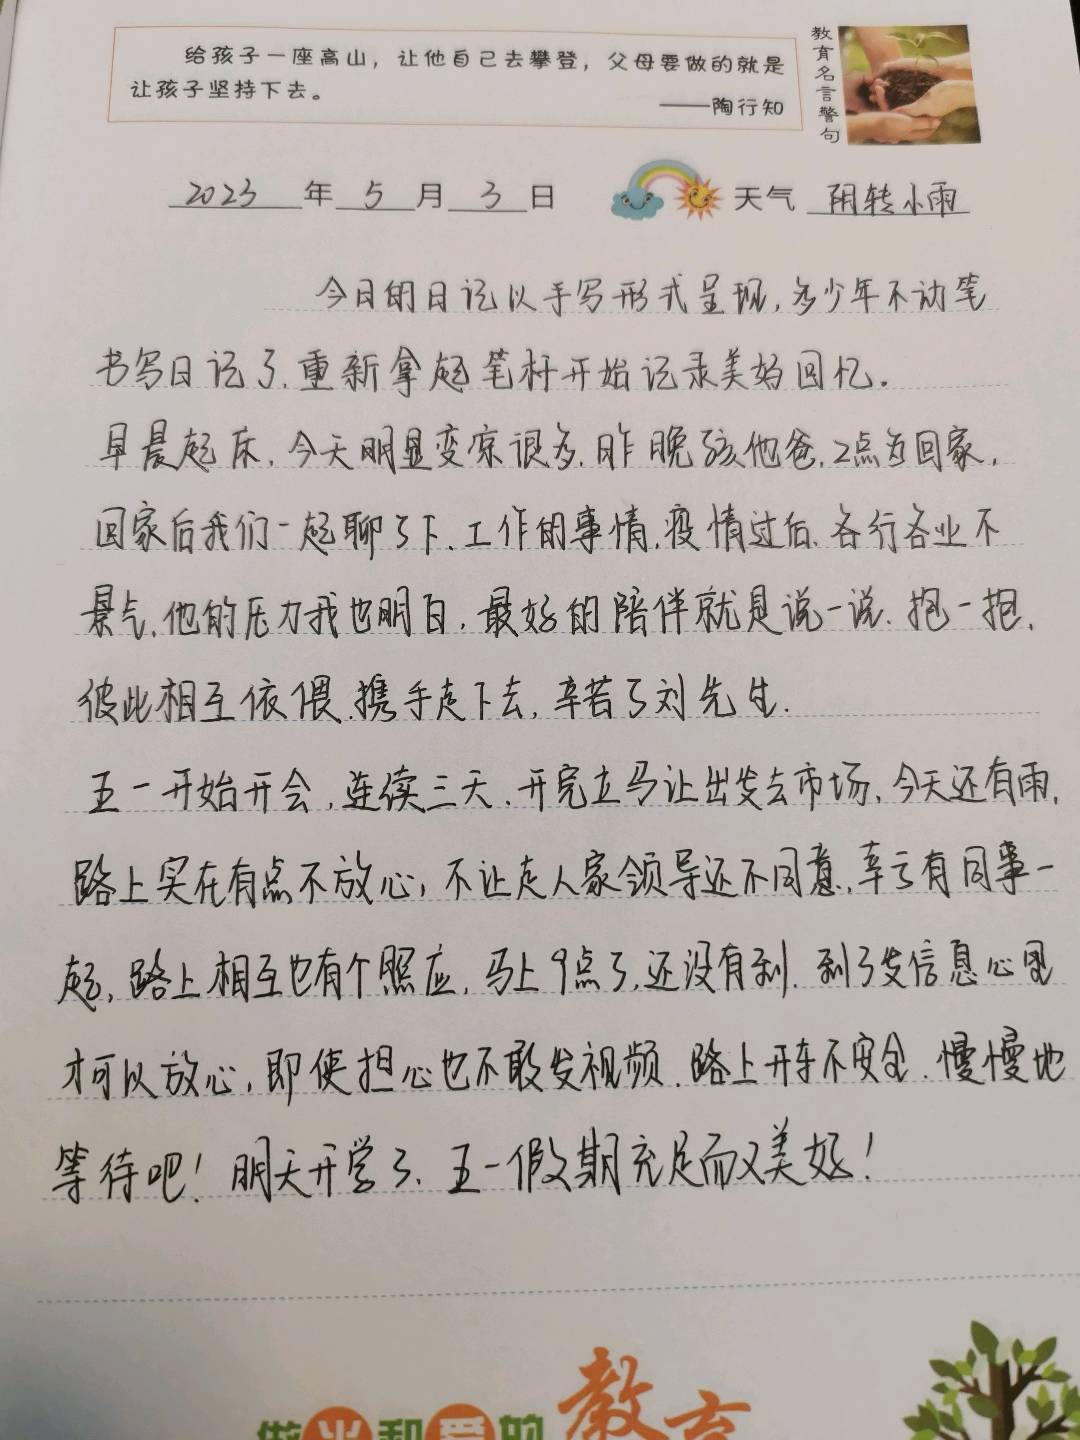 给孩子一座高山，让他自己去攀登，父母要做的就是
让孩子坚持下去。
——陶行知
教育名言警句
2023年5月3日 天气 阴转小雨
今日的日记以手写形式呈现，多少年不动笔
书写日记了，重新拿起笔杆开始记录美好回忆。
早晨起床，今天明显变凉很多，昨晚孩他爸，2点多回家，
回家后我们一起聊了下、工作的事情，疫情过后、各行各业不
景气，他的压力我也明白，最好的陪伴就是说一说、抱一抱，
彼此相互依偎、携手走下去，辛苦了刘先生.
五一开始开会，连续三天、开完立马让出发去市场，今天还有雨，
路上实在有点不放心，不让走人家领导还不同意，幸亏有同事一
起，路上相互也有个照应，马上9点了，还没有到. 到了发信息心里
才可以放心，即使担心也不敢发视频、路上开车不安全. 慢慢地
等待吧！明天开学了、五一假期充足而又美好！
做光和爱的教育